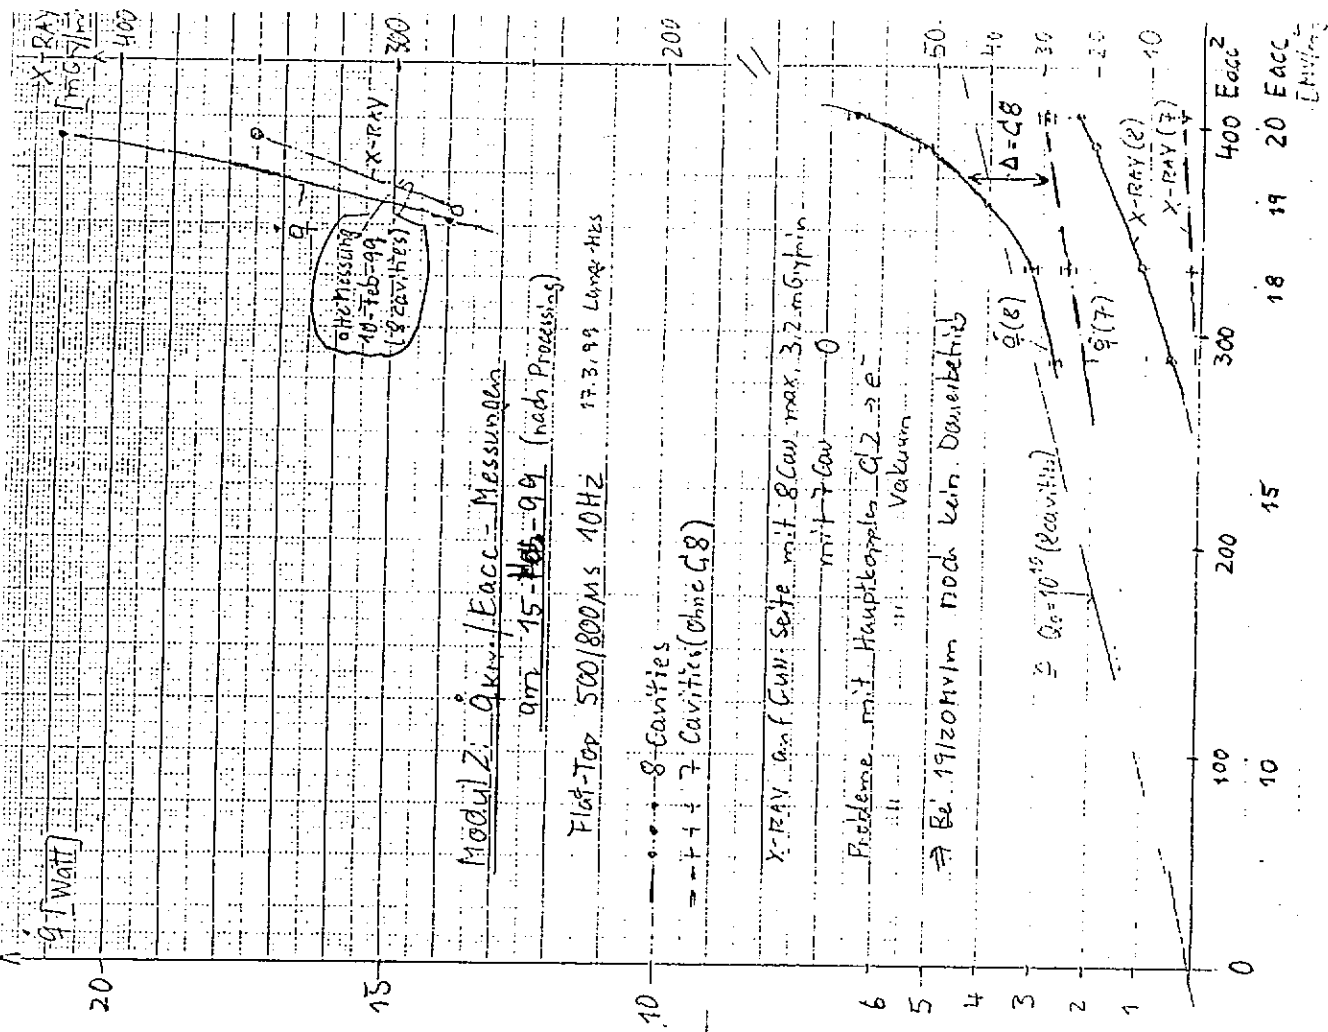 q̇ [Watt]
X-RAY
[mGy/min]
400
300
200
20
15
10
6
5
4
3
2
1
50
40
30
20
10
q̇
X-RAY
10-Feb-99
(8 cavities)
Modul 2: q̇ / Eacc - Messungen
am 15-99 (nach Processing)
Flat-Top 500/800µs 10Hz 17.3.99 Lange-Hes
8 cavities
7 Cavities (ohne C8)
X-RAY auf Gun-Seite mit 8 Cav max. 3,2 mGy/min
mit 7 Cav — 0
Probleme mit Hauptkoppler C2 → e⁻
" " Vakuum
⇒ Bei 19/20 MV/m noch kein Dauerbetrieb
≙ Q₀ = 10¹⁰ (8 cavities)
q̇ (8)
q̇ (7)
Δ = C8
X-RAY (8)
X-RAY (7)
0 100 200 300 400 Eacc²
10 15 18 19 20 Eacc
[MV/m]